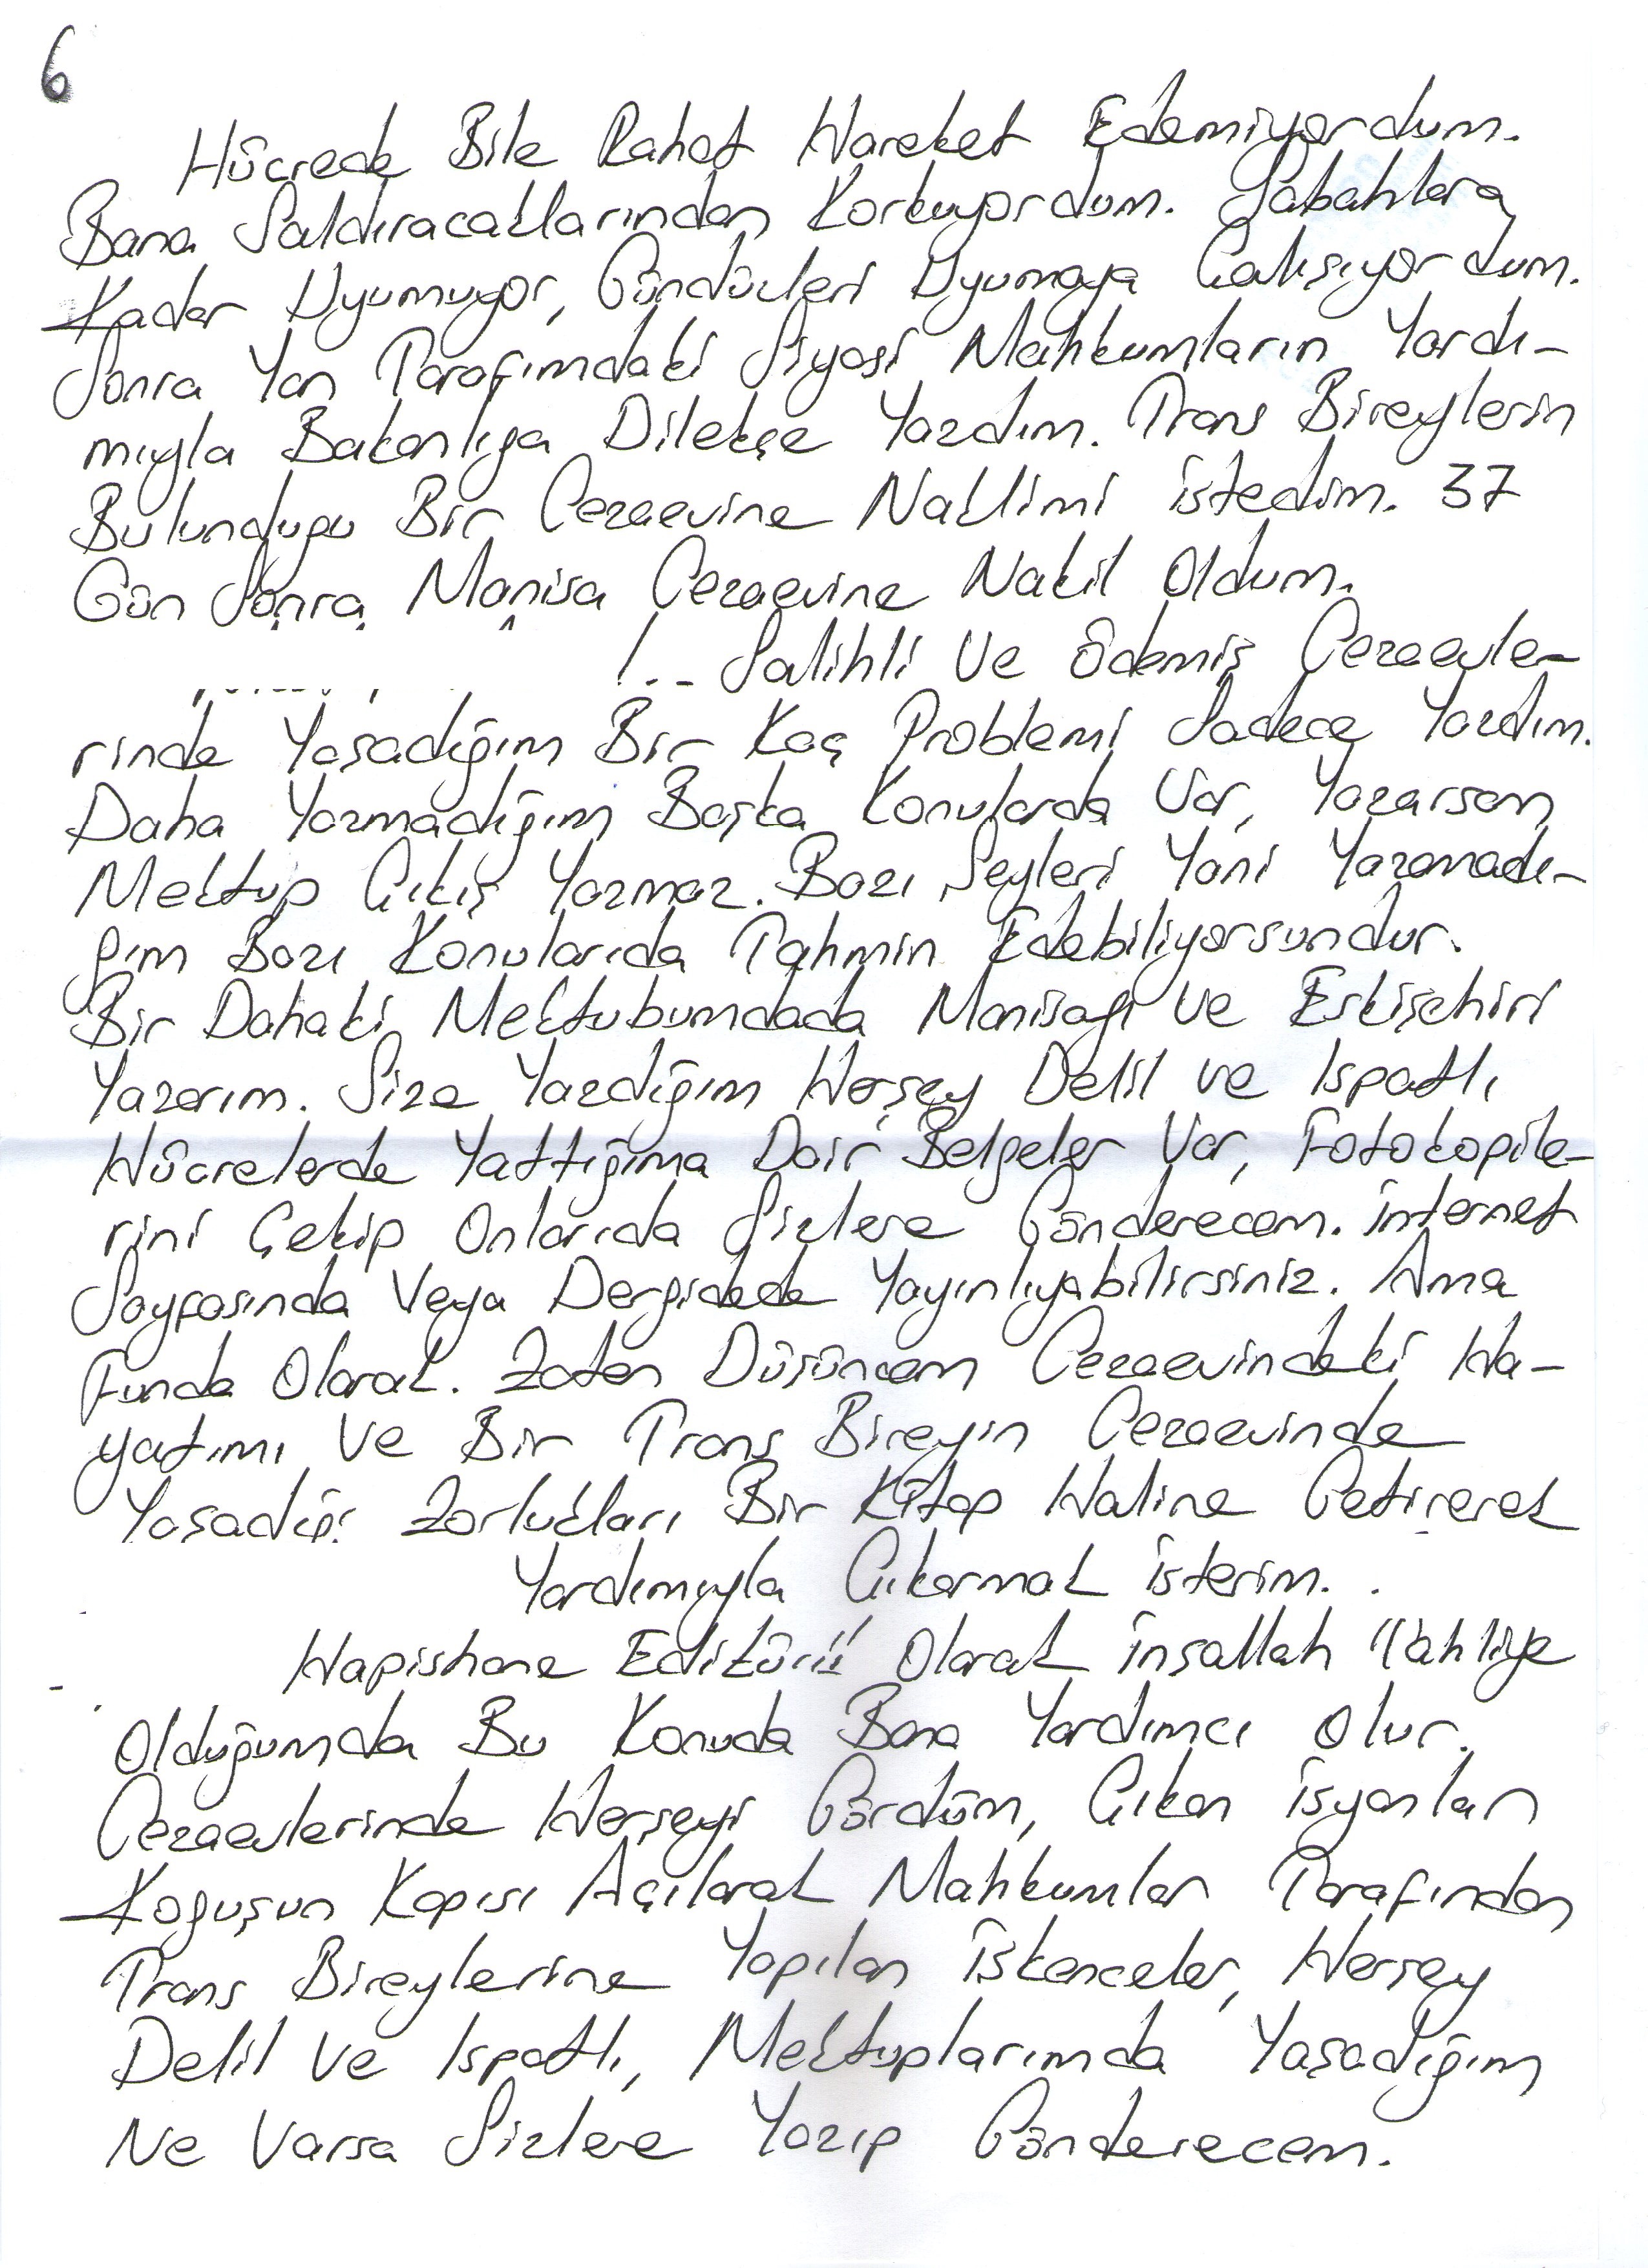 6
Hücrede Bile Rahat Hareket Edemiyordum.
Bana Saldıracaklarından Korkuyordum. Sabahlara
Kadar Uyumuyor, Gündüzleri Uyumaya Çalışıyordum.
Sonra Yan Tarafımdaki Siyasi Mahkumların Yardı-
mıyla Bakanlıga Dilekçe Yazdım. Trans Bireylerin
Bulundugu Bir Cezaevine Naklimi istedim. 37
Gün Sonra Manisa Cezaevine Nakil Oldum.
Salihli Ve Ödemiş Cezaevle-
rinde Yaşadığım Bir Kaç Problemi Sadece Yazdım.
Daha Yazmadığım Başka Konularda Var, Yazarsam
Mektup Çıkış Yazmaz. Bazı Şeyleri Yani Yazamadı-
gım Bazı Konularıda Tahmin Edebiliyorsundur.
Bir Dahaki Mektubumdada Manisayı Ve Eskişehiri
Yazarım. Size Yazdığım Herşey Delil ve Ispatlı
Hücrelerde Yattığıma Dair Belgeler Var, Fotokopile-
rini Çekip Onlarıda Sizlere Gönderecem. İnternet
Sayfasında Veya Dergidede Yayınlıyabilirsiniz. Ama
Funda Olarak. Zaten Düşüncem Cezaevindeki Ha-
yatımı Ve Bir Trans Bireyin Cezaevinde
Yaşadığı Zorlukları Bir Kitap Haline Getirerek
Yardımıyla Çıkarmak isterim.
Hapishane Editörü Olarak inşallah Tahliye
Olduğumda Bu Konuda Bana Yardımcı Olur.
Cezaevlerinde Herşeyi Gördüm, Çıkan isyanları
Koguşun Kapısı Açılarak Mahkumlar Tarafından
Trans Bireylerine Yapılan işkenceler, Herşey
Delil Ve Ispatlı, Mektuplarımda Yaşadığım
Ne Varsa Sizlere Yazıp Gönderecem.